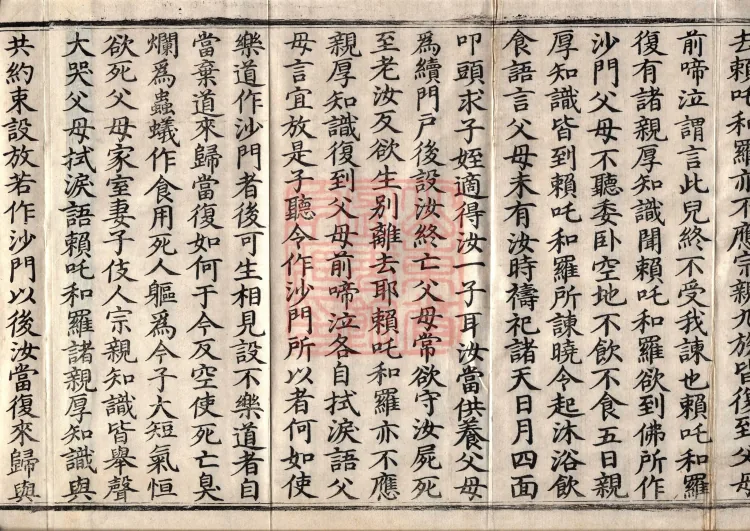 去賴吒和羅亦不應宗親九族皆復到父母
前啼泣謂言此兒終不受我諫也賴吒和羅
復有諸親厚知識聞賴吒和羅欲到佛所作
沙門父母不聽委卧空地不飲不食五日親
厚知識皆到賴吒和羅所諫曉令起沐浴飲
食語言父母未有汝時禱祀諸天日月四面
叩頭求子姪適得汝一子耳汝當供養父母
爲續門戶後設汝終亡父母常欲守汝屍死
至老汝反欲生别離去耶賴吒和羅亦不應
親厚知識復到父母前啼泣各自拭淚語父
母言宜放是子聽令作沙門所以者何如使
樂道作沙門者後可生相見設不樂道者自
當棄道來歸當復如何于今反空使死亡臭
爛爲蟲蟻作食用死人軀爲今子大短氣恒
欲死父母家室妻子伎人宗親知識皆舉聲
大哭父母拭淚語賴吒和羅諸親厚知識與
共約束設放若作沙門以後汝當復來歸與